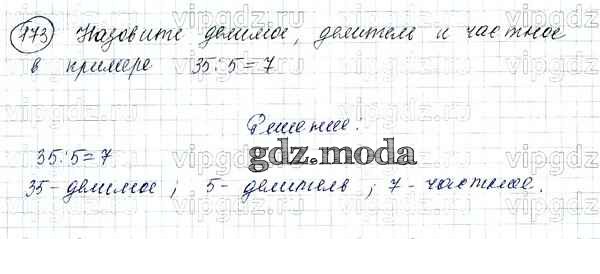 173 Назовите делимое, делитель и частное
в примере 35:5=7
Решение.
gdz.moda
35:5=7
35-делимое; 5-делитель; 7-частное.